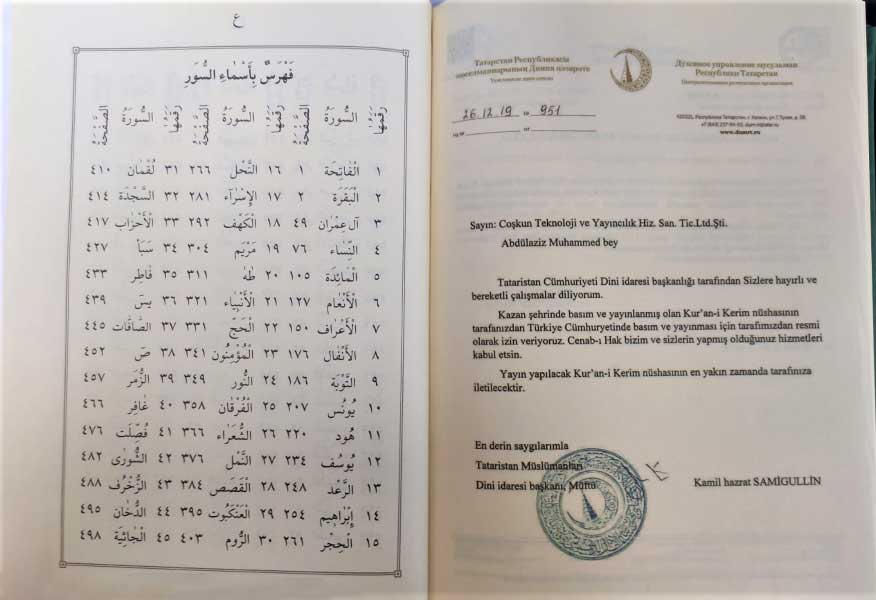 ع
فَهْرَسٌ بِأَسْمَاءِ السُّوَرِ
رقمها السُّورَة الصَّفْحَة رقمها السُّورَة الصَّفْحَة رقمها السُّورَة الصَّفْحَة
١ الْفَاتِحَة ١ ١٦ النَّحْل ٢٦٦ ٣١ لُقْمَان ٤١٠
٢ الْبَقَرَة ٢ ١٧ الْإِسْرَاء ٢٨١ ٣٢ السَّجْدَة ٤١٤
٣ آل عِمْرَان ٤٩ ١٨ الْكَهْف ٢٩٢ ٣٣ الْأَحْزَاب ٤١٧
٤ النِّسَاء ٧٦ ١٩ مَرْيَم ٣٠٤ ٣٤ سَبَأ ٤٢٧
٥ الْمَائِدَة ١٠٥ ٢٠ طه ٣١١ ٣٥ فَاطِر ٤٣٣
٦ الْأَنْعَام ١٢٧ ٢١ الْأَنْبِيَاء ٣٢١ ٣٦ يسَ ٤٣٩
٧ الْأَعْرَاف ١٥٠ ٢٢ الْحَجّ ٣٣١ ٣٧ الصَّافَّات ٤٤٥
٨ الْأَنْفَال ١٧٦ ٢٣ الْمُؤْمِنُون ٣٤١ ٣٨ صَ ٤٥٢
٩ التَّوْبَة ١٨٦ ٢٤ النُّور ٣٤٩ ٣٩ الزُّمَر ٤٥٧
١٠ يُونُس ٢٠٧ ٢٥ الْفُرْقَان ٣٥٨ ٤٠ غَافِر ٤٦٦
١١ هُود ٢٢٠ ٢٦ الشُّعَرَاء ٣٦٦ ٤١ فُصِّلَت ٤٧٦
١٢ يُوسُف ٢٣٤ ٢٧ النَّمْل ٣٧٦ ٤٢ الشُّورَى ٤٨٢
١٣ الرَّعْد ٢٤٨ ٢٨ الْقَصَص ٣٨٤ ٤٣ الزُّخْرُف ٤٨٨
١٤ إِبْرَاهِيم ٢٥٤ ٢٩ الْعَنْكَبُوت ٣٩٥ ٤٤ الدُّخَان ٤٩٥
١٥ الْحِجْر ٢٦١ ٣٠ الرُّوم ٤٠٣ ٤٥ الْجَاثِيَة ٤٩٨
Татарстан Республикасы
мөселманнарының Диния нәзарәте
Духовное управление мусульман
Республики Татарстан
Централизованная религиозная организация
26.12.19 № 951
420021, Республика Татарстан, г. Казань, ул. Г.Тукая, д. 38.
www.dumrt.ru
Sayın: Coşkun Teknoloji ve Yayıncılık Hiz. San. Tic.Ltd.Şti.
Abdülaziz Muhammed bey
Tataristan Cümhuriyeti Dini idaresi başkanlığı tarafından Sizlere hayırlı ve
bereketli çalışmalar diliyorum.
Kazan şehrinde basım ve yayınlanmış olan Kur'an-i Kerim nüshasının
tarafınızdan Türkiye Cümhuryetinde basım ve yayınması için tarafımızdan resmi
olarak izin veriyoruz. Cenab-ı Hak bizim ve sizlerin yapmış olduğunuz hizmetleri
kabul etsin.
Yayın yapılacak Kur'an-i Kerim nüshasının en yakın zamanda tarafınıza
iletilecektir.
En derin saygılarımla
Tataristan Müslümanları
Dini idaresi başkanı, Müftü
Kamil hazrat SAMİGULLİN